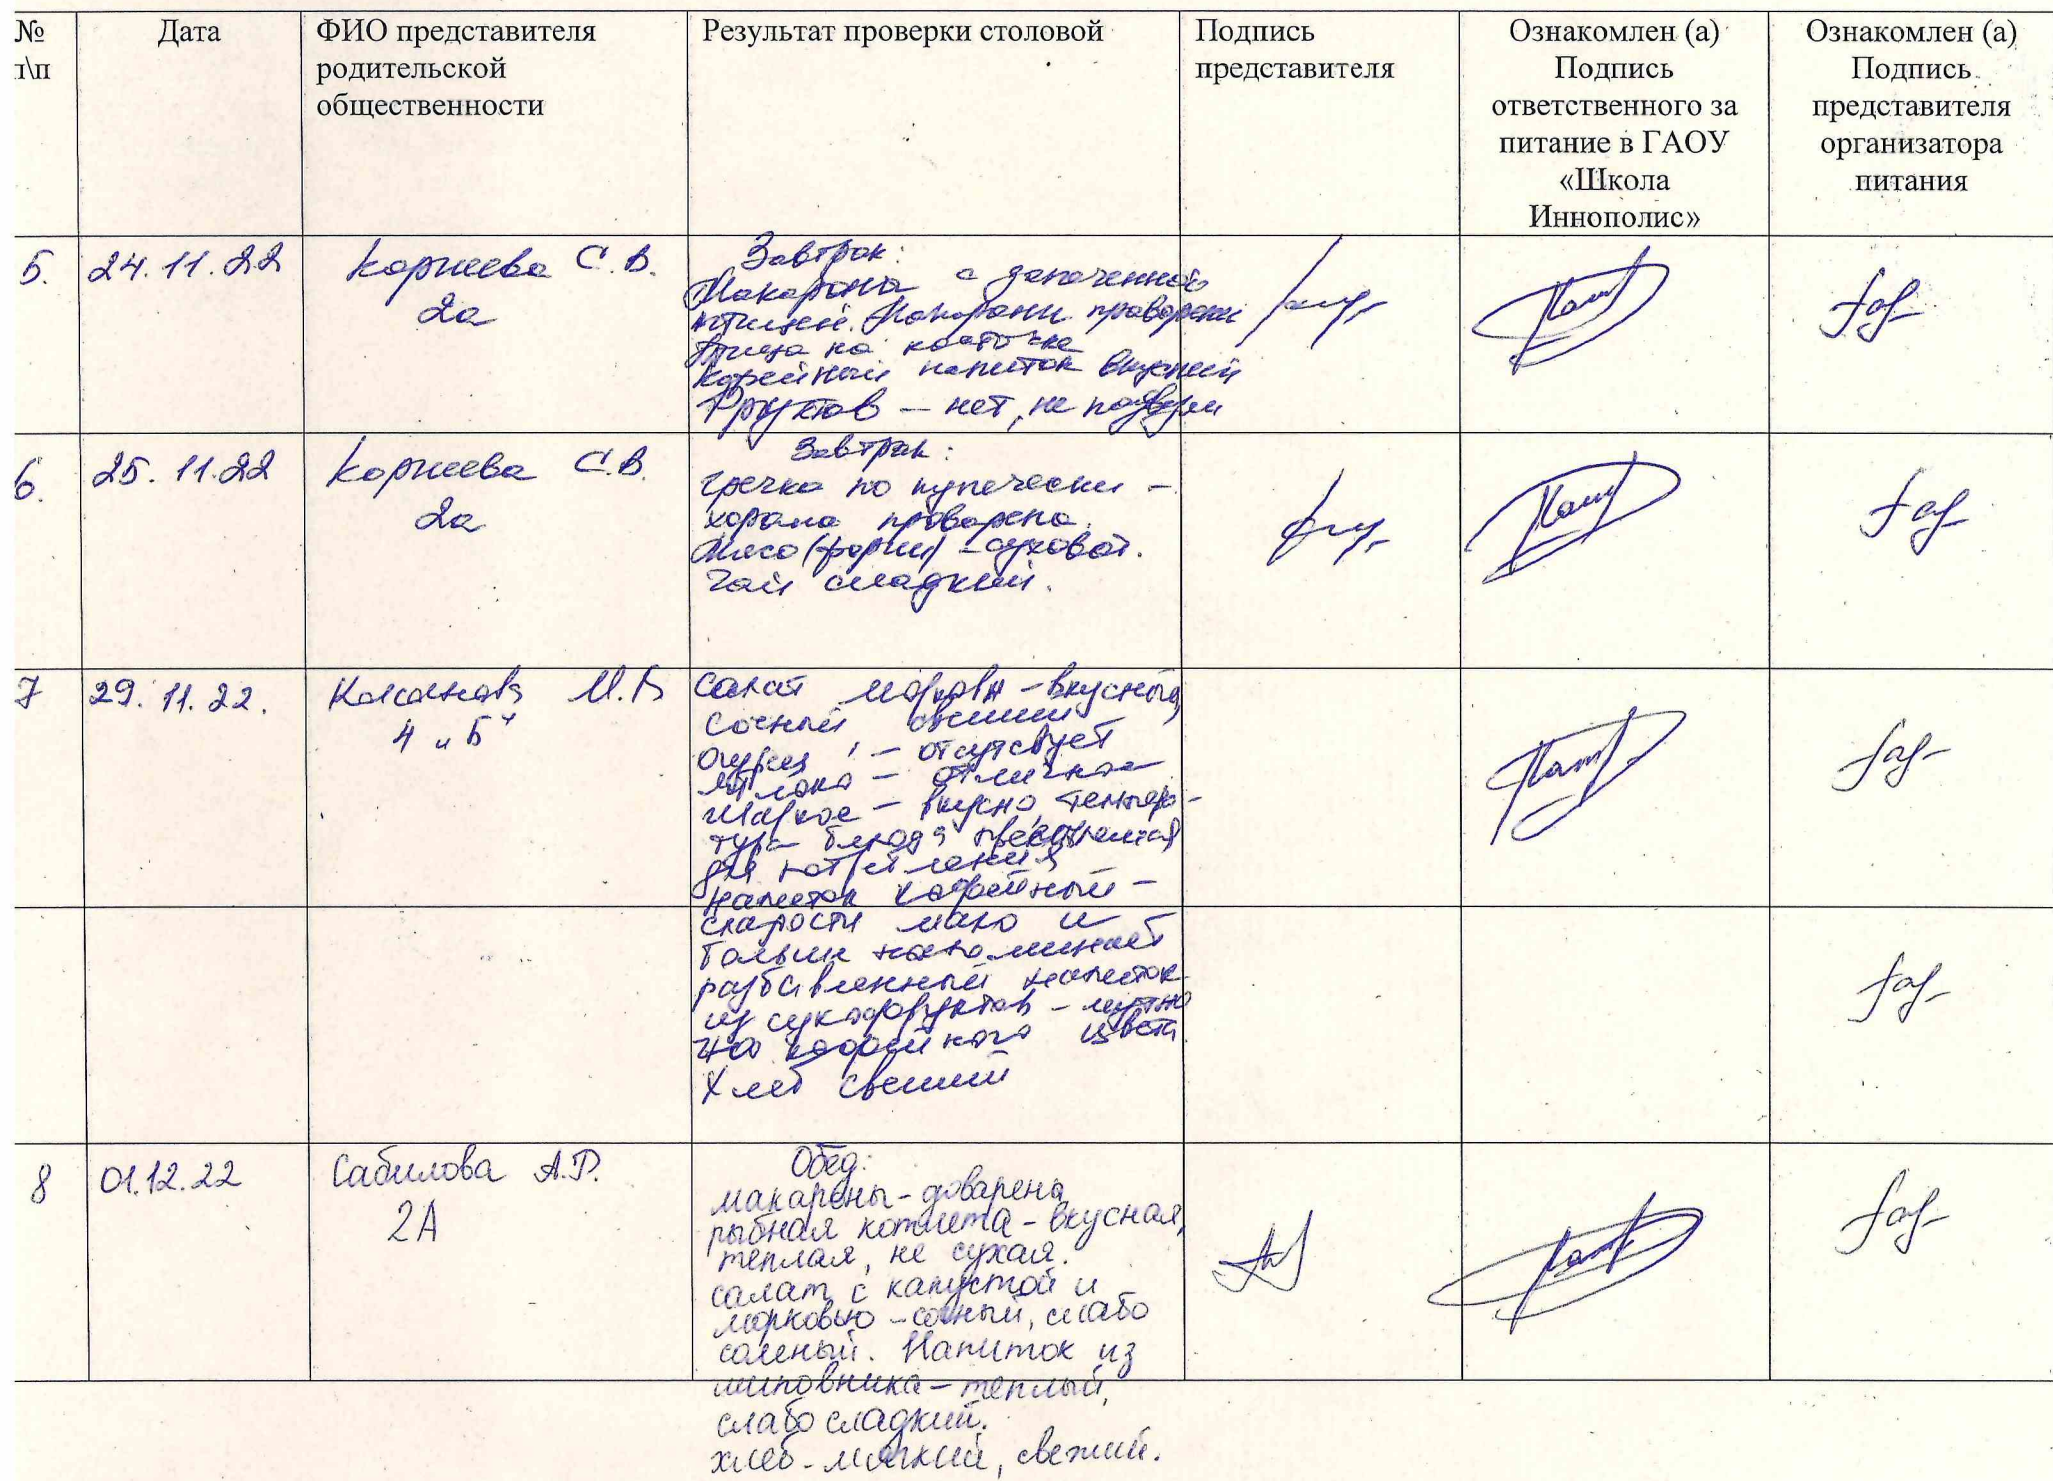 № п\п
Дата
ФИО представителя
родительской
общественности
Результат проверки столовой
Подпись
представителя
Ознакомлен (а)
Подпись
ответственного за
питание в ГАОУ
«Школа
Иннополис»
Ознакомлен (а)
Подпись
представителя
организатора
питания
5.
24.11.22
Корнеева С.В.
2а
Завтрак:
Макароны с запеченной
птицей. Макароны проварены
Птица на косточке
Кофейный напиток вкусный
Фруктов – нет, не
6.
25.11.22
Корнеева С.В.
2а
Завтрак:
гречка по купечески –
хорошо проварена.
Мясо (фарш) – суховат.
Чай сладкий.
7
29.11.22.
М.В
4 "Б"
Салат морковн – вкусный,
сочный, свежий
огурец – отсутсвует
яблоко – отлично
Жаркое – вкусно, темпера-
тура блюда
для
напиток кофейный –
сладости мало и
больше напоминает
разбавленный напиток
из сухофруктов – мутно
го кофейного цвета
Хлеб свежий
8
01.12.22
Сабилова А.Р.
2А
Обед:
макароны - доварены
рыбная котлета - вкусная,
теплая, не сухая.
салат с капустой и
морковью - сочный, слабо
соленый. Напиток из
шиповника - теплый,
слабо сладкий.
хлеб - мягкий, свежий.